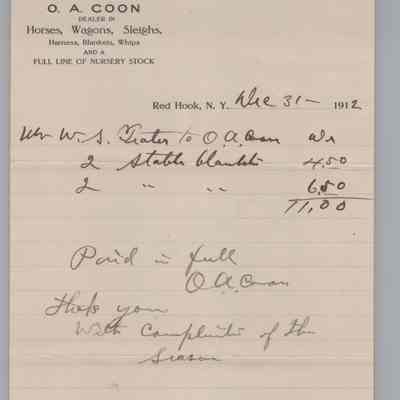 O. A. COON
DEALER IN
Horses, Wagons, Sleighs,
Harness, Blankets, Whips
AND A
FULL LINE OF NURSERY STOCK
Red Hook, N. Y. Dec 31 - 1912
Mr W. S. Teator to O. A. Coon Dr
2 Stable blankets 4.50
2 " " 6.50
11,00
Paid in full
O. A. Coon
thank you
With Compliments of the
Season